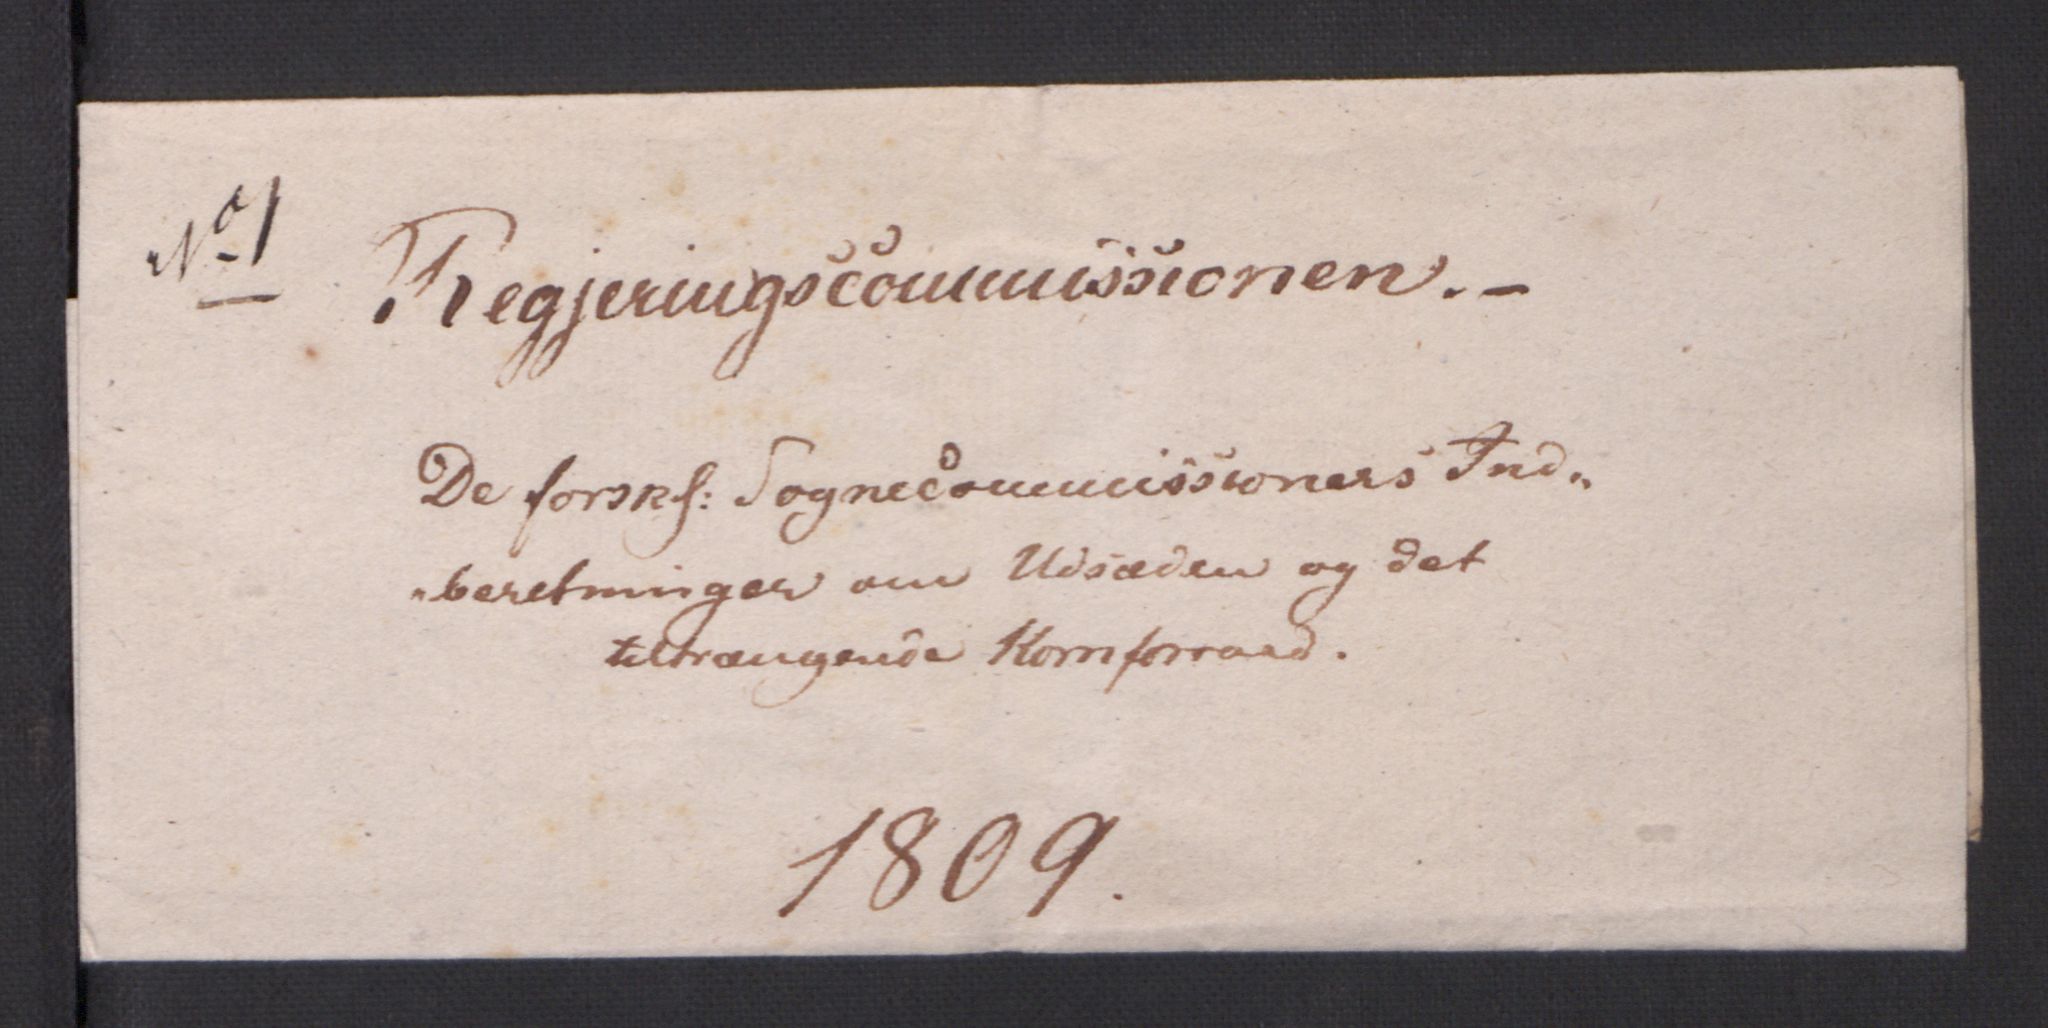 No 1
Regjeringscommissionen.-
De forskj: Sognecommissioners Ind„
„beretninger om Udsæden og det
tiltrængende Kornforraad.
1809.